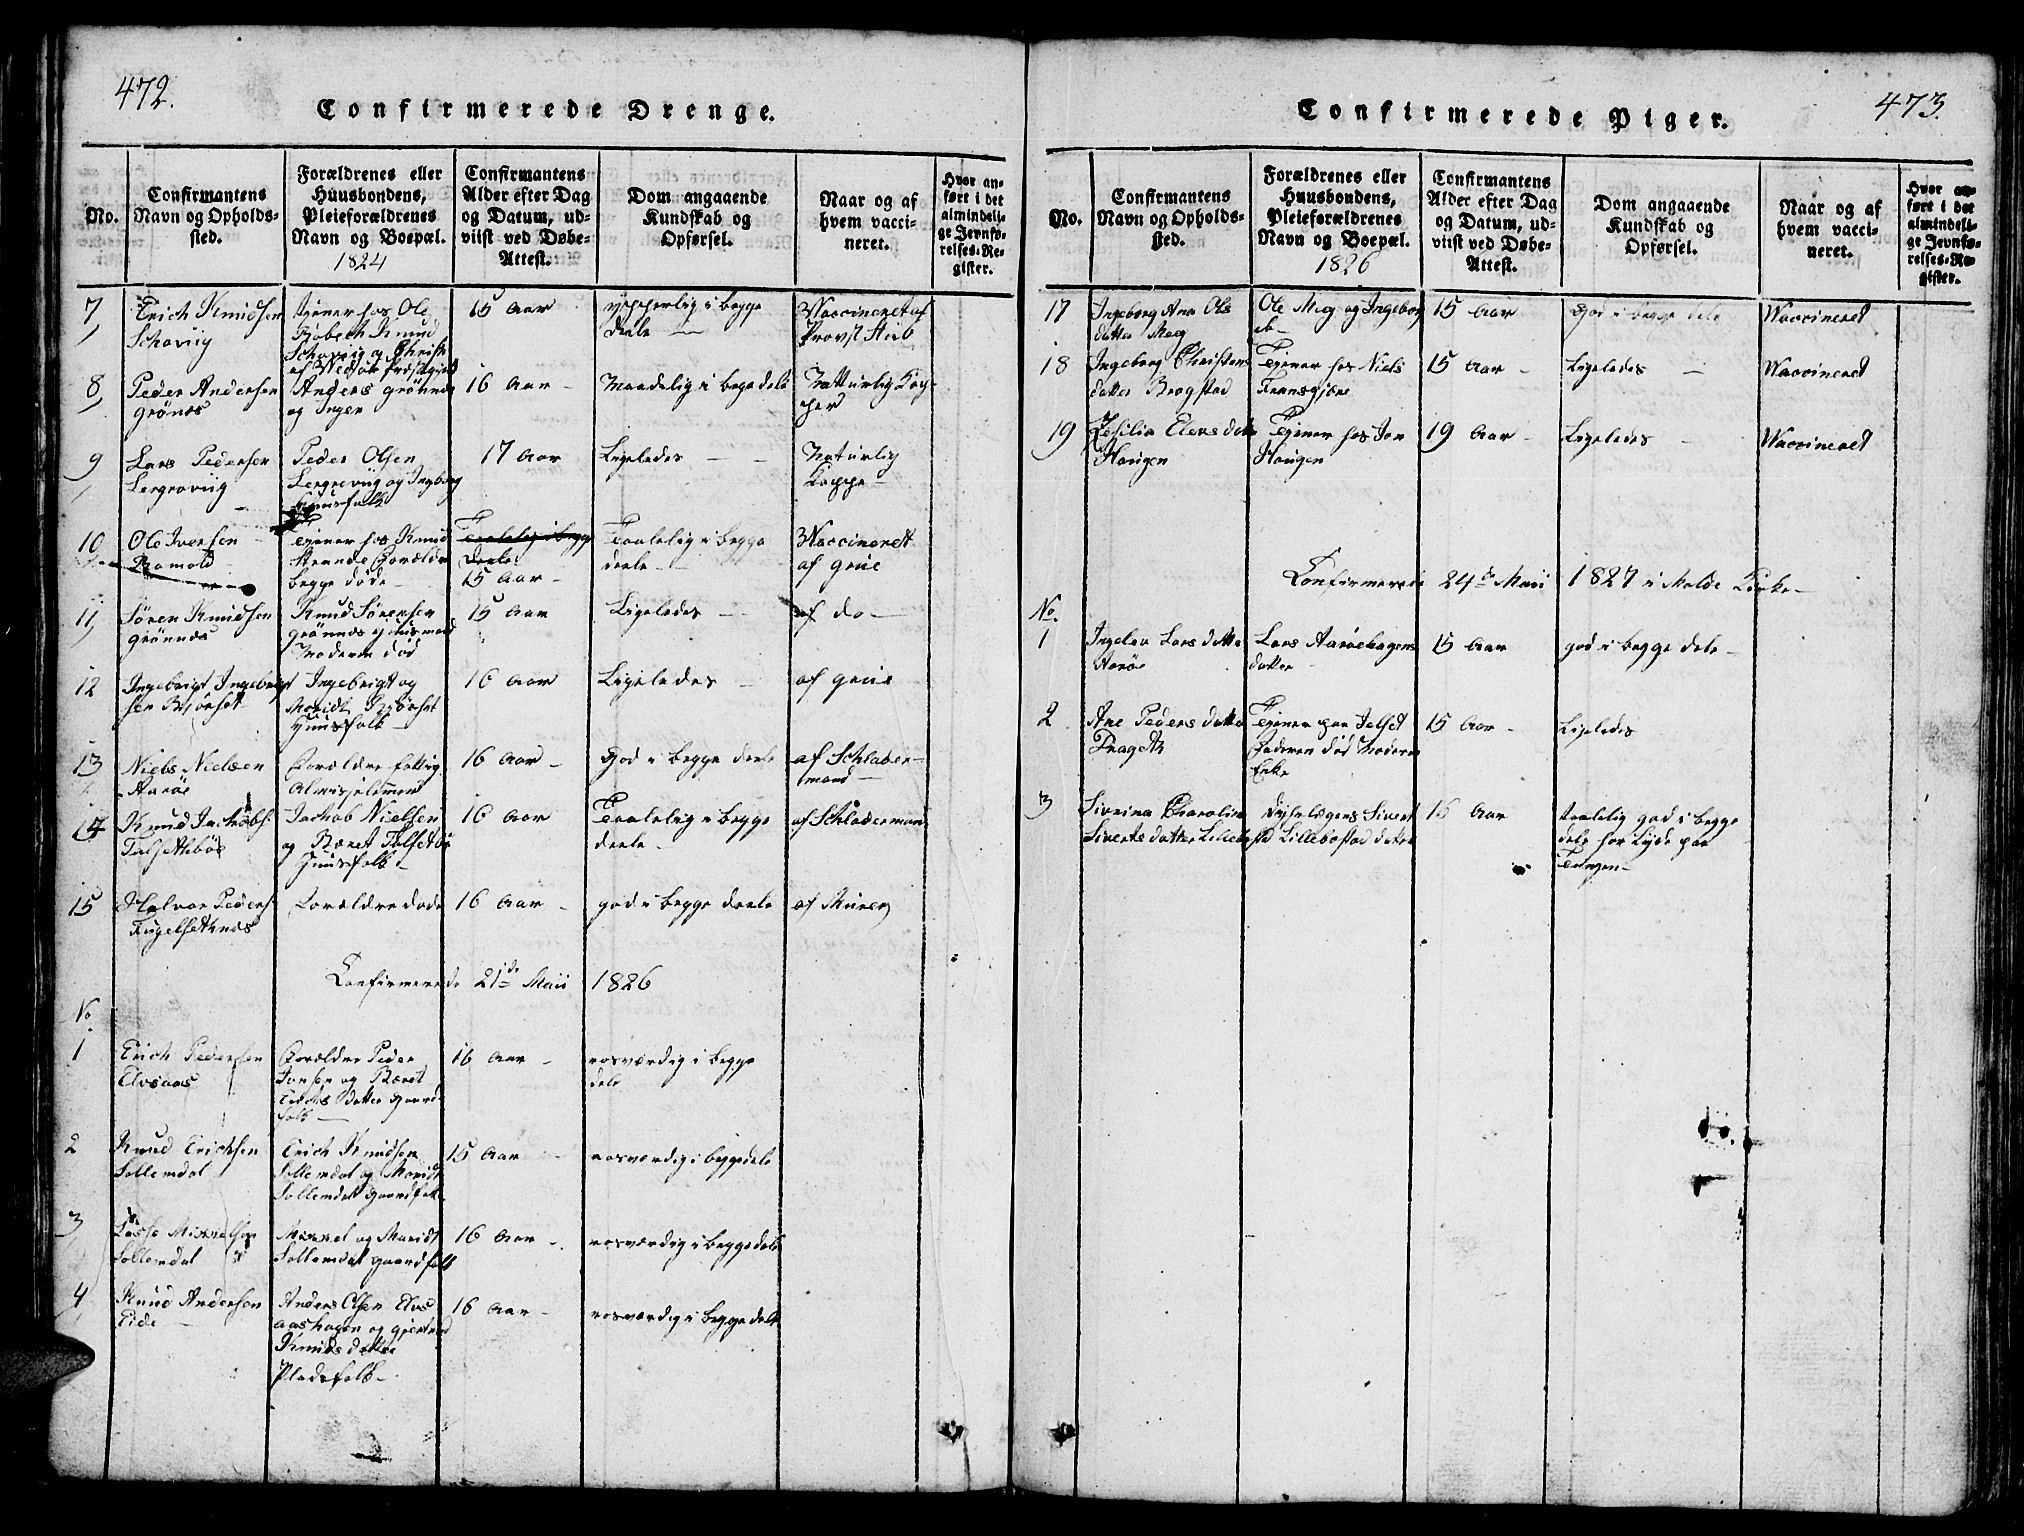 472.
Confirmerede Drenge.
No.
Confirmantens
Navn og Opholds-
sted.
Forældrenes eller
Huusbondens,
Pleieforældrenes
Navn og Boepæl.
1824
Confirmantens
Alder efter Dag
og Datum, ud-
viist ved Døbe-
Attest.
Dom angaaende
Kundskab og
Opførsel.
Naar og af
hvem vacci-
neret.
Hvor an-
ført i det
almindeli-
ge Jevnfø-
relses-Re-
gister.
7
Erich Knudsen
Schoviig
Tjener hos Ole
Knud
15 Aar
ypperlig i begge
deele
Vaccineret af
Provst Stub
8
Peder Andersen
Grönnes
Anders Grönnes
og Inger
16 Aar -
Maadelig i begge deele
Natturlig Kop-
per
9
Lars Pedersen
Lergroviig
Peder Olsen
Lergroviig og Ingeborg
Huusfolk
17 Aar
Ligeledes - -
Naturlig
Koppe -
10
Ole Iversen
Romold
Tjener hos Knud
Strande Forældre
begge döde -
Taalelig i begge
deele
15 Aar -
Taalelig i begge
deele -
Vaccineret
af Grue
11
Sören Knudsen
Grönnes
Knud Sörensen
Grönnes Huusmand
Moderen död
15 Aar
Ligeledes -
af do -
12
Ingebrigt Ingebrigt
sen Bjórset
Ingebrigt og
Marit Bjórset
Huusfolk -
16 Aar
Ligeledes -
af Grue
13
Niels Nielsen
Aaröe
Forældre fattig
Almisselemmer
16 Aar -
God i begge deele
af Schlader-
mand -
14
Knud Jachobs:
Talsethböe
Jachob Nielsen
og Beret Talsetböe
Huusfolk -
16 Aar
Taalelig i begge
deele -
af Schladermand
15
Halvor Peders:
Fugelsethnes
Forældre döde
16 Aar -
god i begge deele
af Muren
Confirmerede 21de Maii 1826
No
1
Erich Pedersen
Elvsaas
Forældre Peder
Jonsen og Beret
Erichsdatter Gaard-
folk -
16 Aar -
rosværdig i begge
dele
2
Knud Erichsen
Sollemdal
Erich Knudsen
Sollemdal og Marit
Sollemdal Gaardfolk
15 Aar -
rosværdig i begge dele
3
Lasse Mikkelsen
Sollemdal
Mikkel og Marit
Sollemdal Gaardfolk
16 Aar -
rosværdig i begge dele
4
Knud Andersen
Eide -
Anders Olsen Elvs
aashagen og Gjertrud
Knudsdatter
Pladsfolk -
16 Aar -
rosværdig i begge dele
473.
Confirmerede Piger.
No.
Confirmantens
Navn og Opholds-
sted.
Forældrenes eller
Huusbondens,
Pleieforældrenes
Navn og Boepæl.
1826
Confirmantens
Alder efter Dag
og Datum, ud-
viist ved Døbe-
Attest.
Dom angaaende
Kundskab og
Opførsel.
Naar og af
hvem vacci-
neret.
Hvor an-
ført i det
almindeli-
ge Jevnfø-
relses-Re-
gister.
17
Ingeborg Ana Ols
datter Meg
Ole Meg og Ingeborg
ib -
15 Aar
God i begge dele
Vaccineret
18
Ingeborg Christens
datter Brogstad
Tjener hos Niels
15 Aar -
Ligeledes -
Vaccineret
19
Sesilia Elensdatter
Haugen
Tjener hos Jon
Haugen
19 Aar -
Ligeledes -
Vaccineret
Confirmerede 24de Maii 1827 i Molde Kirke -
No.
1
Ingeborg Larsdatter
Aaröe
Lars Aaröehagens
datter -
15 Aar
god i begge dele -
2
Ane Pedersdatter
Tjener paa Jelset
Faderen död Moderen
Enke
15 Aar -
Ligeledes
3
Sivrina Karolina
Sivertsdatter Lillebostad
Sivert
Lillebostad datter
15 Aar
taalelig god i begge
dele har Lyde paa
Tungen -